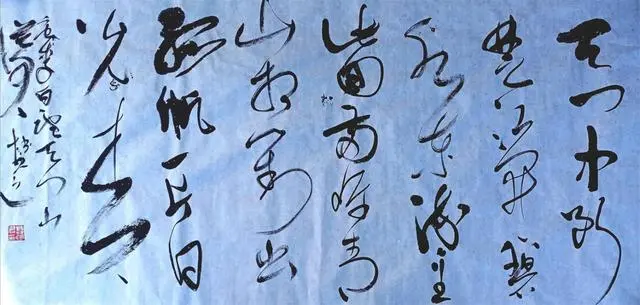 天门中断
楚江开碧
水东流至
此回两岸青
山相对出
孤帆一片日
边来
李白望天门山